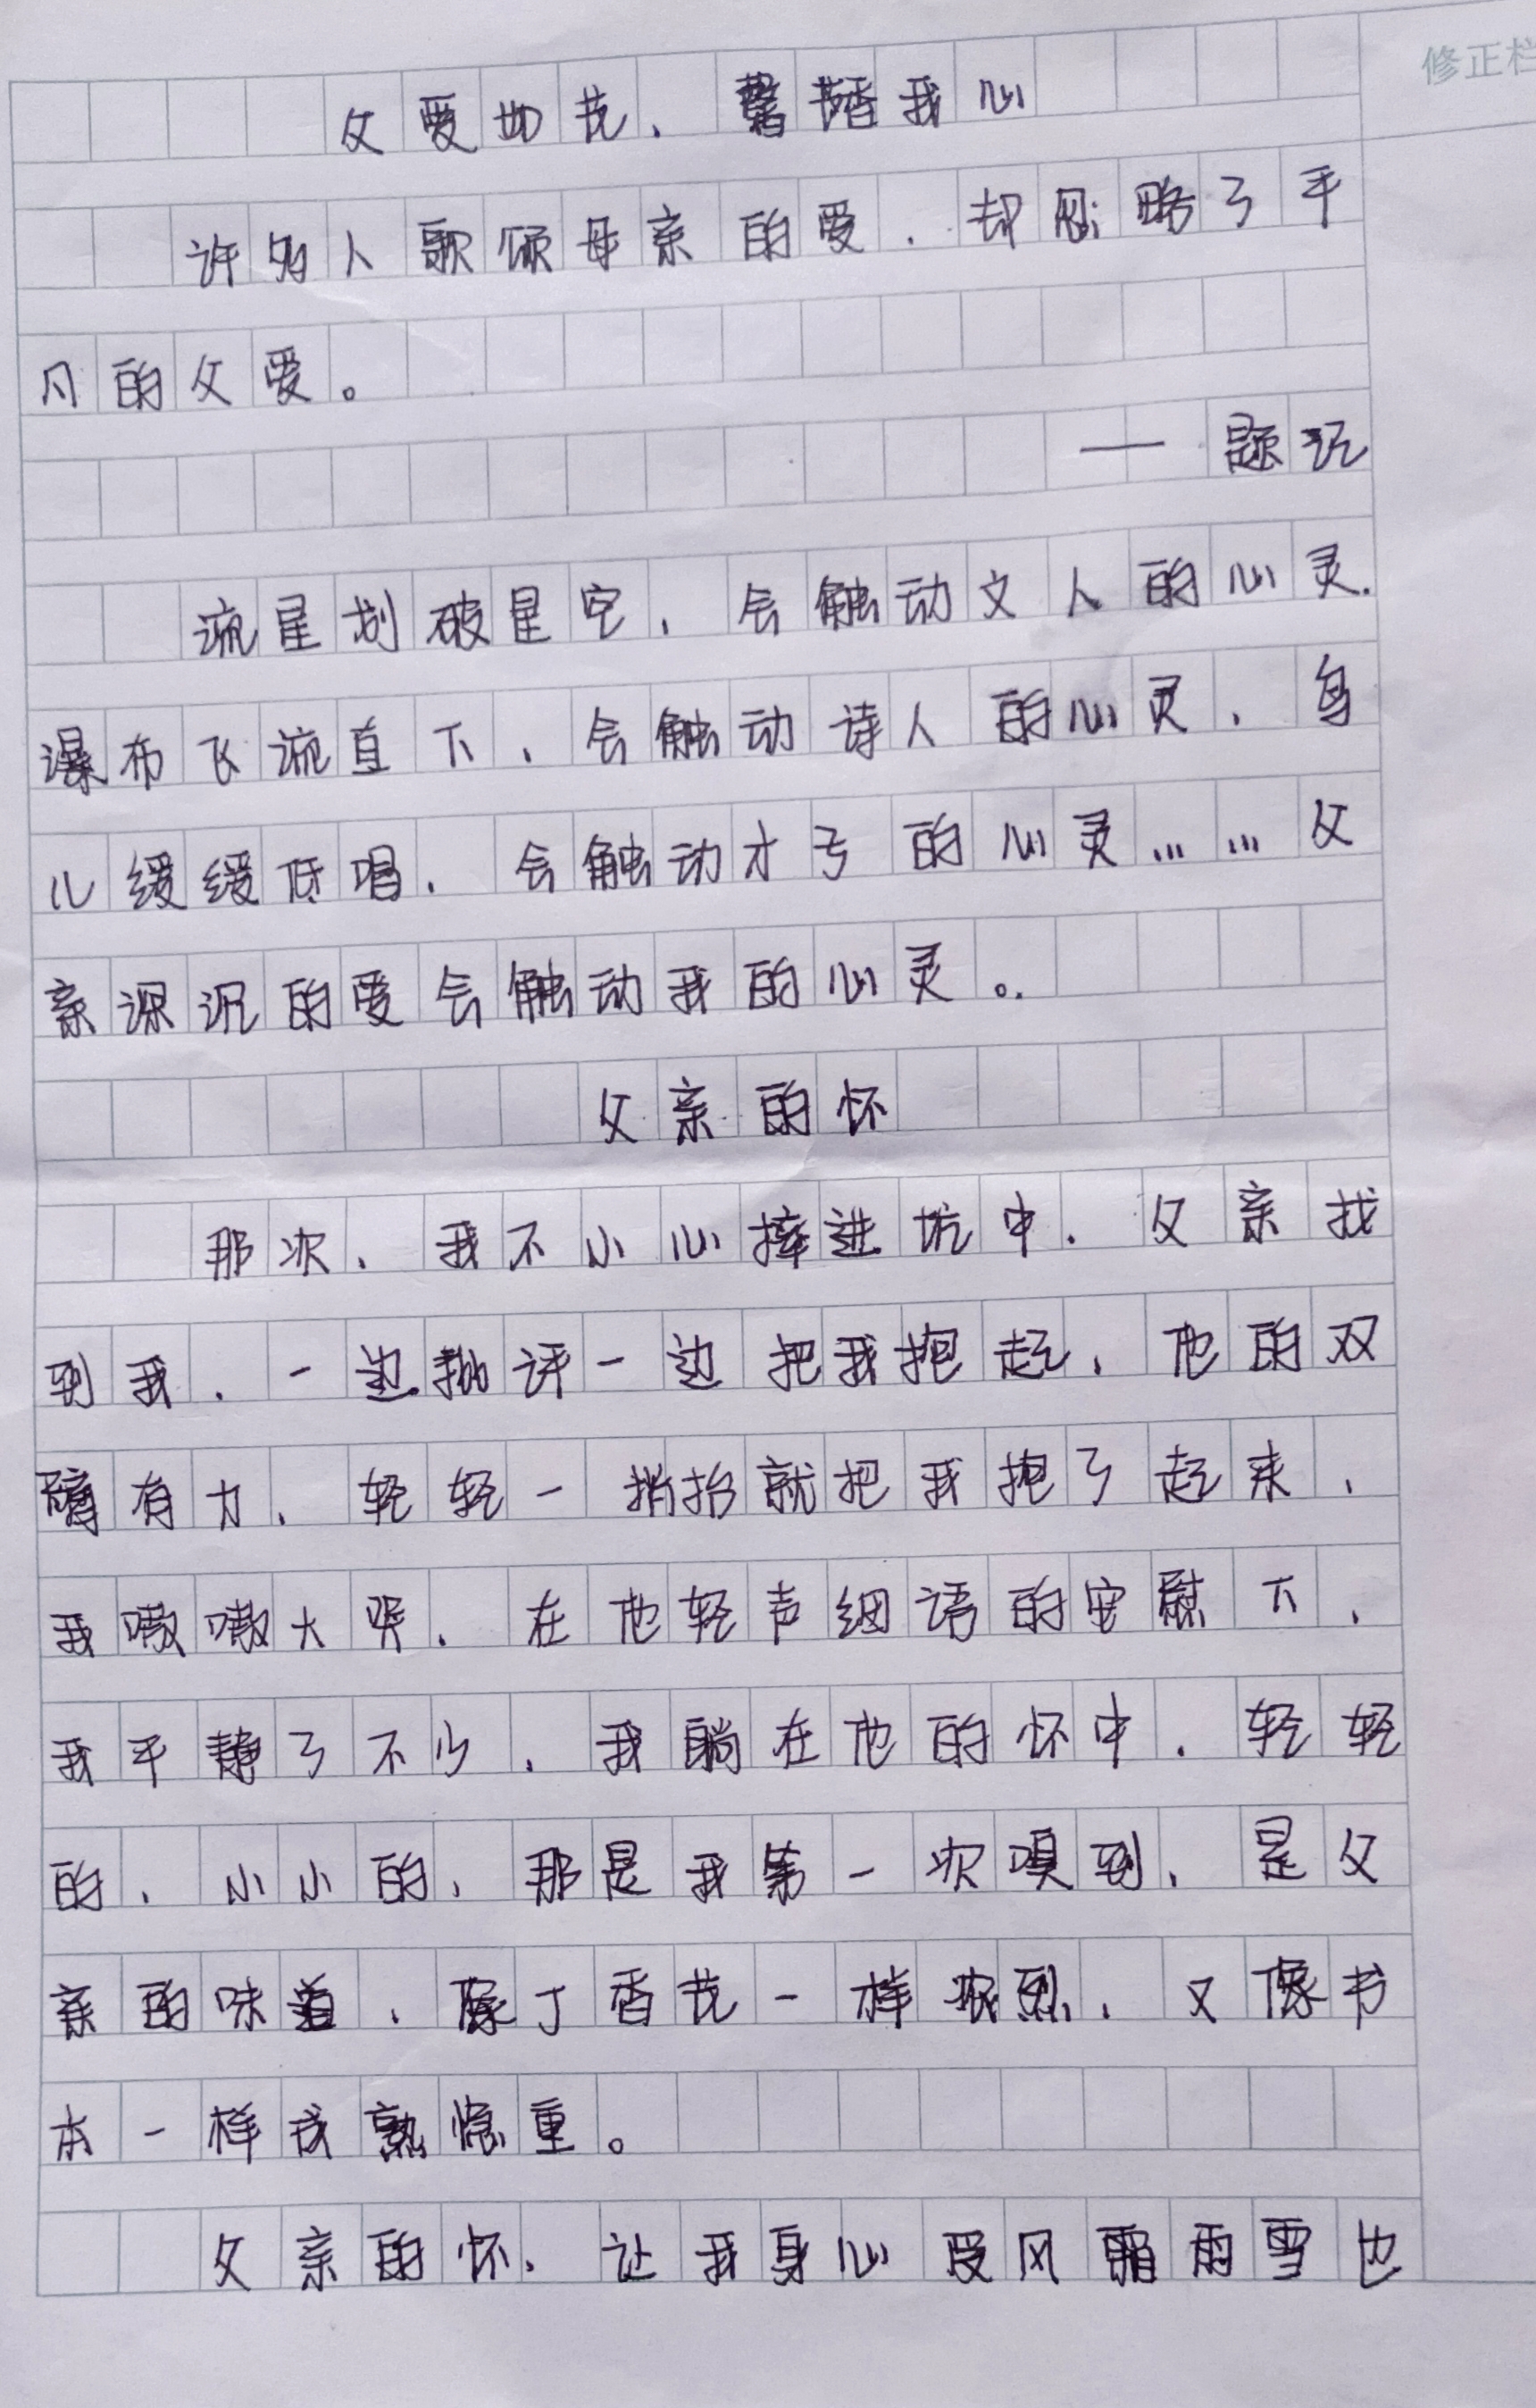 修正栏
父爱如花，馨香我心
许多人歌颂母亲的爱，却忽略了平
凡的父爱。
——题记
流星划破星空，会触动文人的心灵，
瀑布飞流直下，会触动诗人的心灵，鸟
儿缓缓低唱，会触动才子的心灵……父
亲深沉的爱会触动我的心灵。
父亲的怀
那次，我不小心摔进坑中，父亲找
到我，一边批评一边把我抱起，他的双
臂有力，轻轻一捎抬就把我抱了起来，
我嗷嗷大哭，在他轻声细语的安慰下，
我平静了不少，我躺在他的怀中，轻轻
的，小小的，那是我第一次嗅到，是父
亲的味道，像丁香花一样浓烈，又像书
本一样成熟稳重。
父亲的怀，让我身心受风霜雨雪也